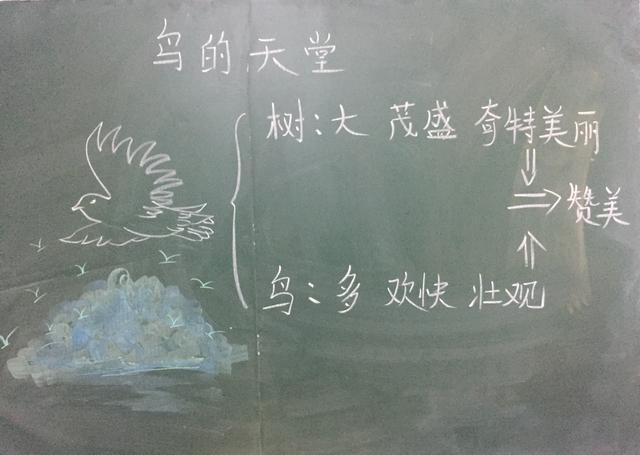 鸟的天堂
树：大 茂盛 奇特美丽
赞美
鸟：多 欢快 壮观